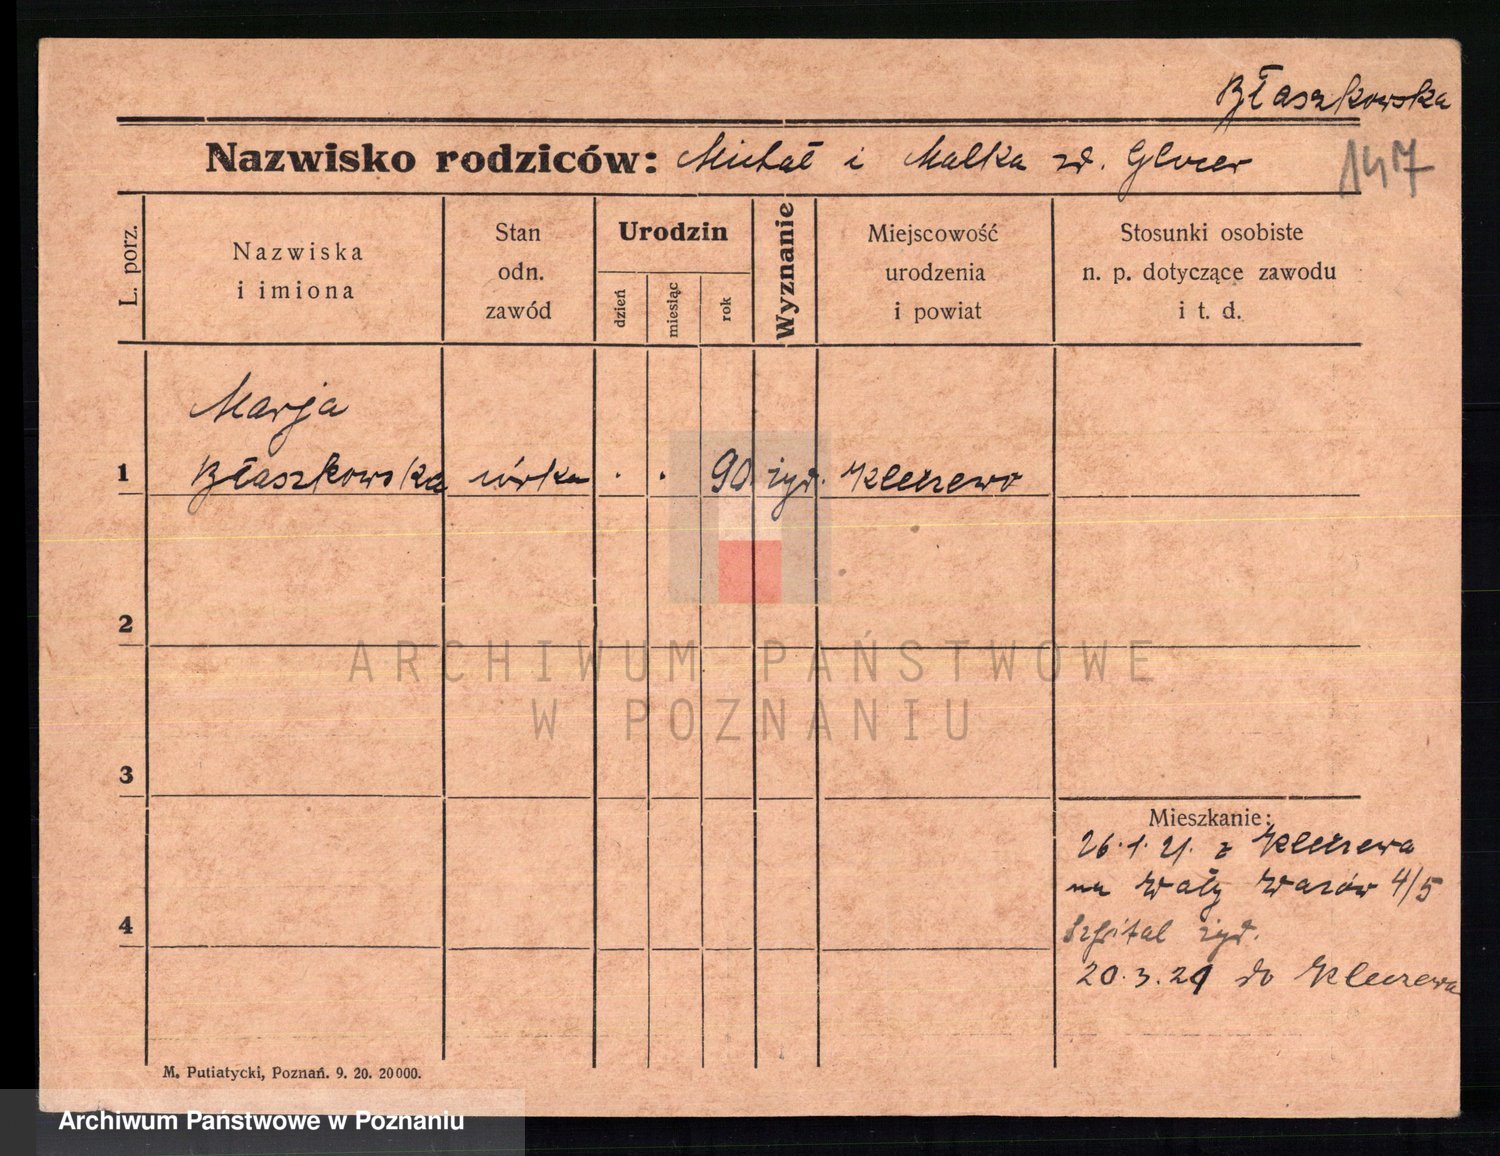 Błaszkowska
Nazwisko rodziców: Michał i Malka zd.
147
L. porz.
Nazwiska
i imiona
Stan
odn.
zawód
Urodzin
dzień
miesiąc
rok
Wyznanie
Miejscowość
urodzenia
i powiat
Stosunki osobiste
n. p. dotyczące zawodu
i t. d.
Marja
1 Błaszkowska córka . . 90 żyd. Kleczewo
2
3
4
ARCHIWUM PAŃSTWOWE
W POZNANIU
Mieszkanie:
26.1.21. z Kleczewa
na Wały Wazów 4/5
Szpital żyd.
20.3.21 do Kleczewa
M. Putiatycki, Poznań. 9. 20. 20000.
Archiwum Państwowe w Poznaniu